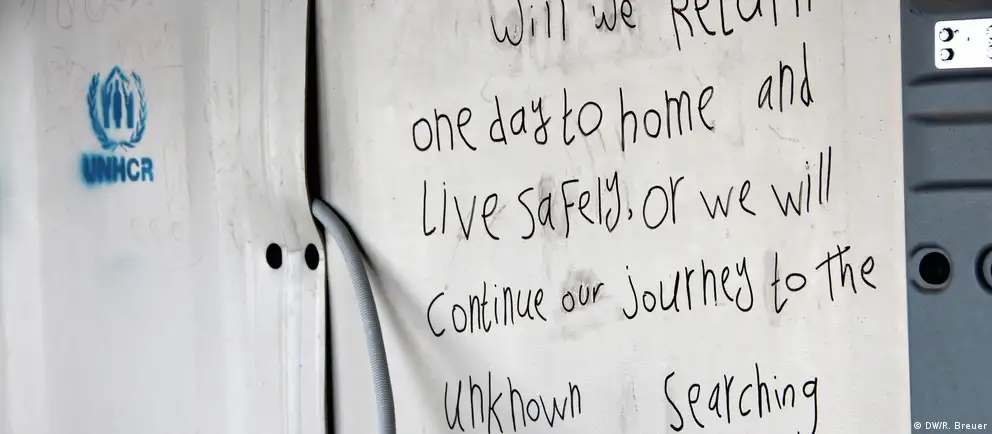 UNHCR
Will we Return
one day to home and
Live safely, or we will
Continue our journey to the
unknown Searching
© DW/R. Breuer